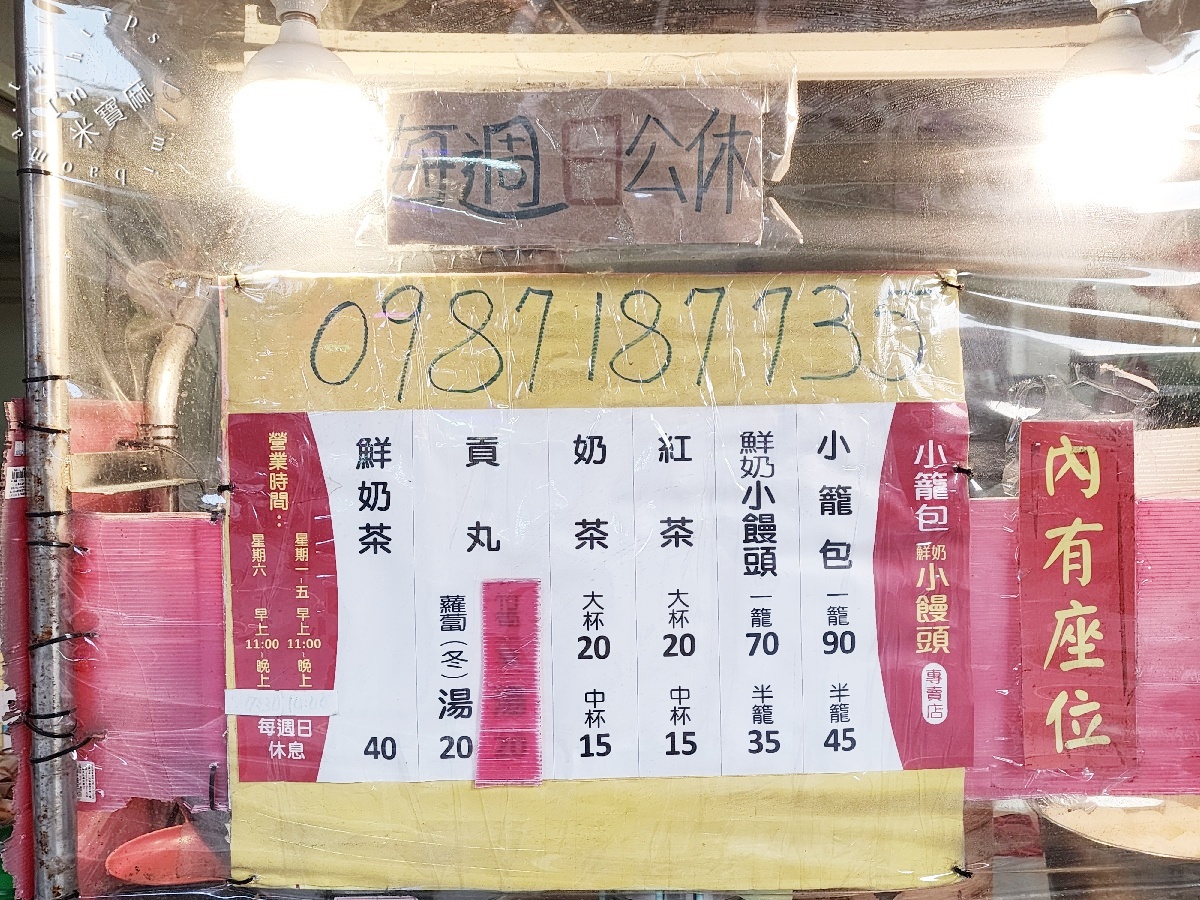 米寶麻
每週日公休
0987187733
小籠包
鮮奶小饅頭
專賣店
小籠包 一籠90 半籠45
鮮奶小饅頭 一籠70 半籠35
紅茶 大杯20 中杯15
奶茶 大杯20 中杯15
貢丸
蘿蔔(冬)湯 20
鮮奶茶 40
營業時間：
星期一~五 早上11:00~晚上
星期六 早上11:00~晚上
每週日
休息
內有座位